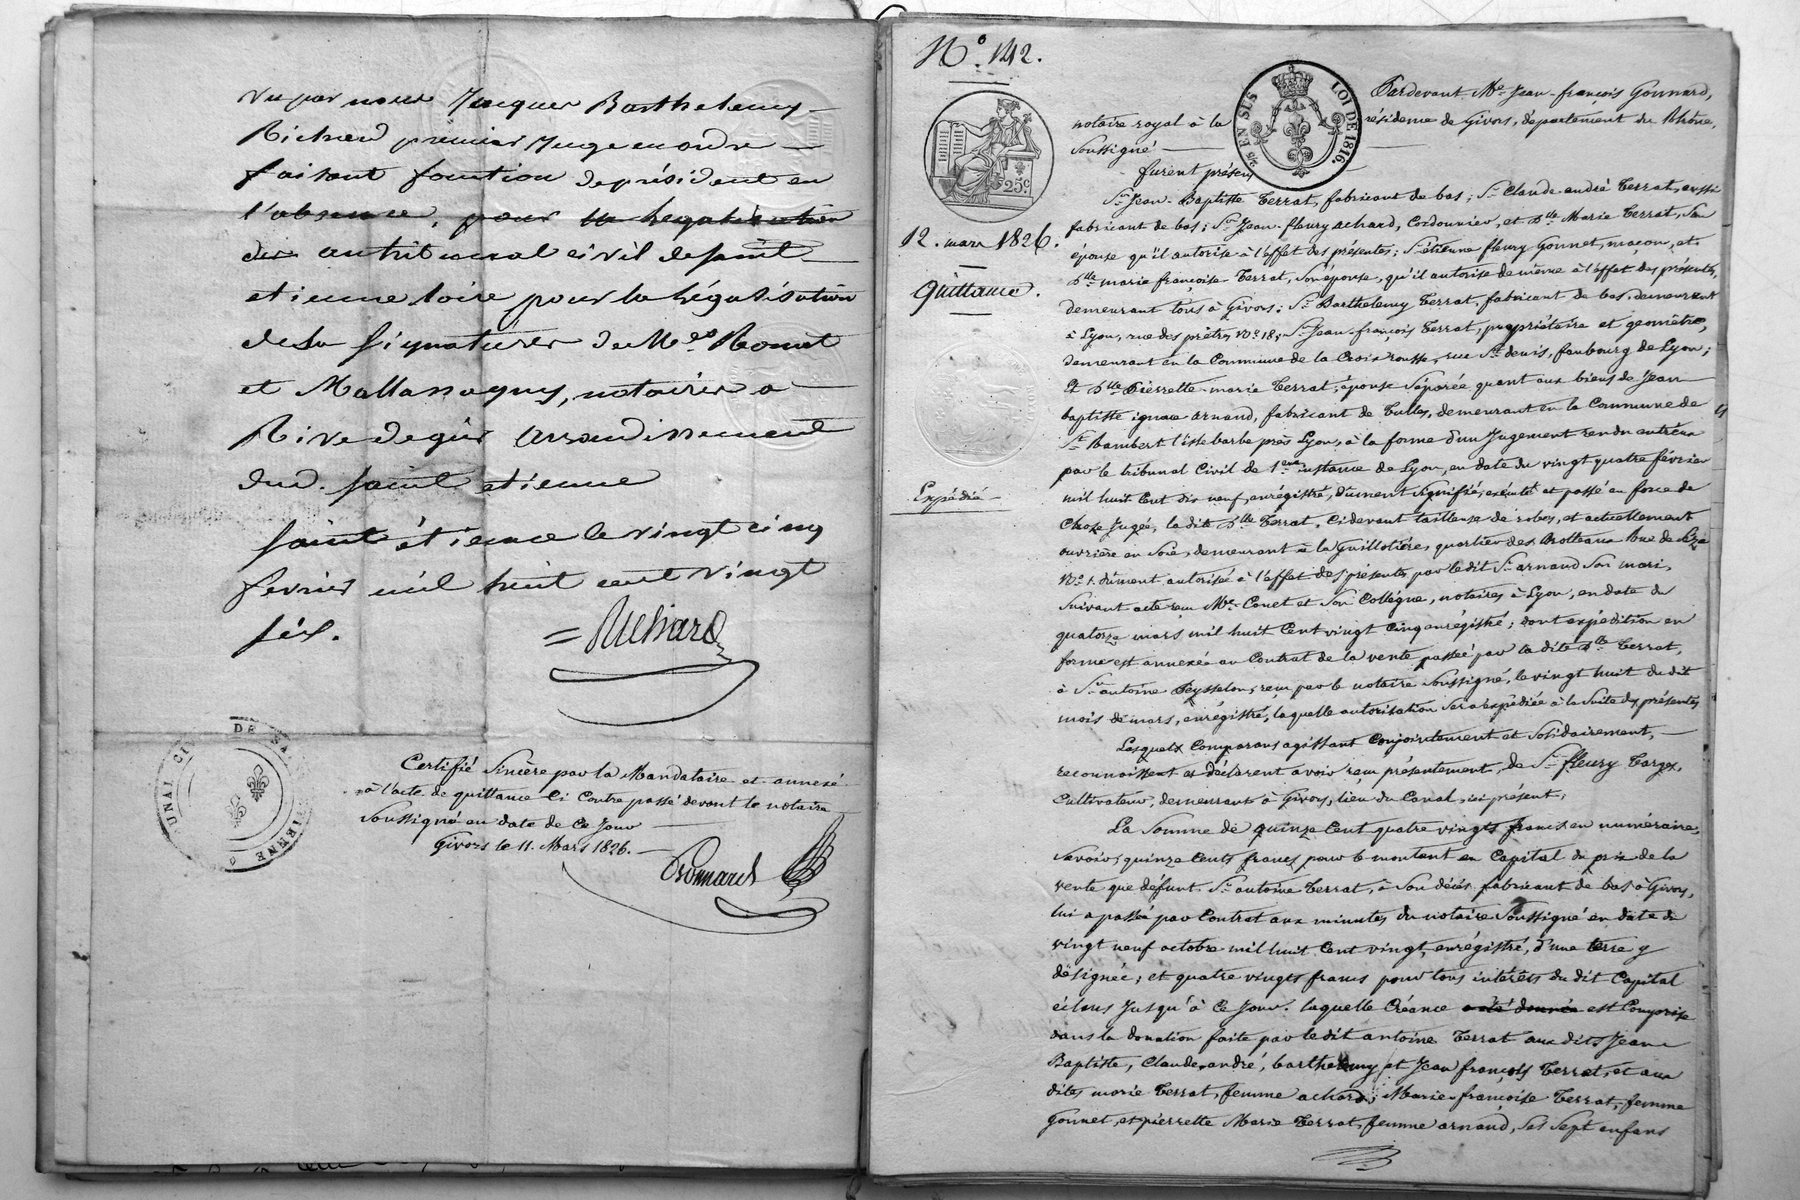 Vu par nous Jacques Barthelemy
Richard premier Juge en ordre
faisant fonction de président en
l'absence, pour la légalisation
du autribunal civil de saint
etienne loire pour la légalisation
de la signatures de Mes
et notaires a
Rivedegier arrondissement
dud. saint etienne
saint étienne le vingt cinq
fevrier mil huit cent vingt
six.
Richard
DE SA
TIENNE
UNAL CI
Certifié Sincère par la Mandataire et annexé
à l'acte de quittance Ci Contre passé devant le notaire
Soussigné en date de Ce Jour
Givors le 11. Mars 1826.
Gonnard
N.° 142.
25c
EN SUS
LOI DE 1816.
12. mars 1826.
Quittance.
Expédié
Pardevant Me. Jean-françois Gonnard,
notaire royal à la résidence de Givors, département du Rhône,
Soussigné
furent présens
Sr. Jean-Baptiste Terrat, fabricant de bas; Sr. Claude-andré Terrat, aussi
fabricant de bas; Sr. Jean-fleury achard, Cordonnier, et Dlle. Marie Terrat, Son
épouse qu'il autorise à l'effet des présentes; Sr. étienne fleury Gonnet, maçon, et
Dlle. marie françoise Terrat, Son épouse, qu'il autorise de même à l'effet des présentes,
demeurant tous à Givors; Sr. Barthelemy Terrat, fabricant de bas, demeurant
à Lyon, rue des prêtres No. 18; Sr. Jean-françois Terrat, propriétaire et geomètre,
demeurant en la Commune de la Croix rousse, rue St. denis, faubourg de Lyon;
Et Dlle. Pierrette-marie Terrat, épouse Séparée quant aux biens de Jean
baptiste ignace arnaud, fabricant de Tulles, demeurant en la Commune de
St. Rambert l'isle barbe près Lyon, à la forme d'un Jugement rendu entr'eux
par le tribunal Civil de 1ere instance de Lyon, en date du vingt quatre février
mil huit Cent dix neuf, enrégistré, dûment Signifié, exécuté et passé en force de
Chose Jugée, la dite Dlle. Terrat, Cidevant tailleuse de robes, et actuellement
ouvrière en Soie, demeurant à la Guillotière, quartier des Brotteaux rue de
No. 1. dûment autorisée à l'effet des présentes par le dit Sr. arnaud Son mari,
Suivant acte reçu Me. et Son Collègue, notaires à Lyon, en date du
quatorze mars mil huit Cent vingt Cinq enrégistré; dont expédition en
forme est annexée au Contrat de la vente passée par la dite Dlle. Terrat,
à Sr. antoine Peysselon, reçu par le notaire Soussigné, le vingt huit du dit
mois de mars, enrégistré, laquelle autorisation Sera expédiée à la Suite des présentes
Lesquels Comparans agissant Conjointement et Solidairement,
reconnoissent et déclarent avoir reçu présentement, de Sr. fleury
Cultivateur, demeurant à Givors, lieu du Canal, ici présent,
La Somme de quinze Cent quatre vingts francs en numéraire,
Savoir, quinze Cents francs pour le montant en Capital du prix de la
vente que défunt Sr. antoine Terrat, à Son décès fabricant de bas à Givors,
lui a passée par Contrat aux minutes du notaire Soussigné en date du
vingt neuf octobre mil huit Cent vingt, enrégistré, d'une terre y
désignée; et quatre vingts francs pour tous intérêts du dit Capital
échus Jusqu'à Ce Jour. laquelle Créance a été donnée est Comprise
dans la donation faite par le dit antoine Terrat aux dits Jean
Baptiste, Claude-andré, barthelemy et Jean françois Terrat, et aux
dites marie Terrat, femme achard; Marie-françoise Terrat, femme
Gonnet, et pierrette Marie Terrat, femme arnaud, Ses Sept enfans